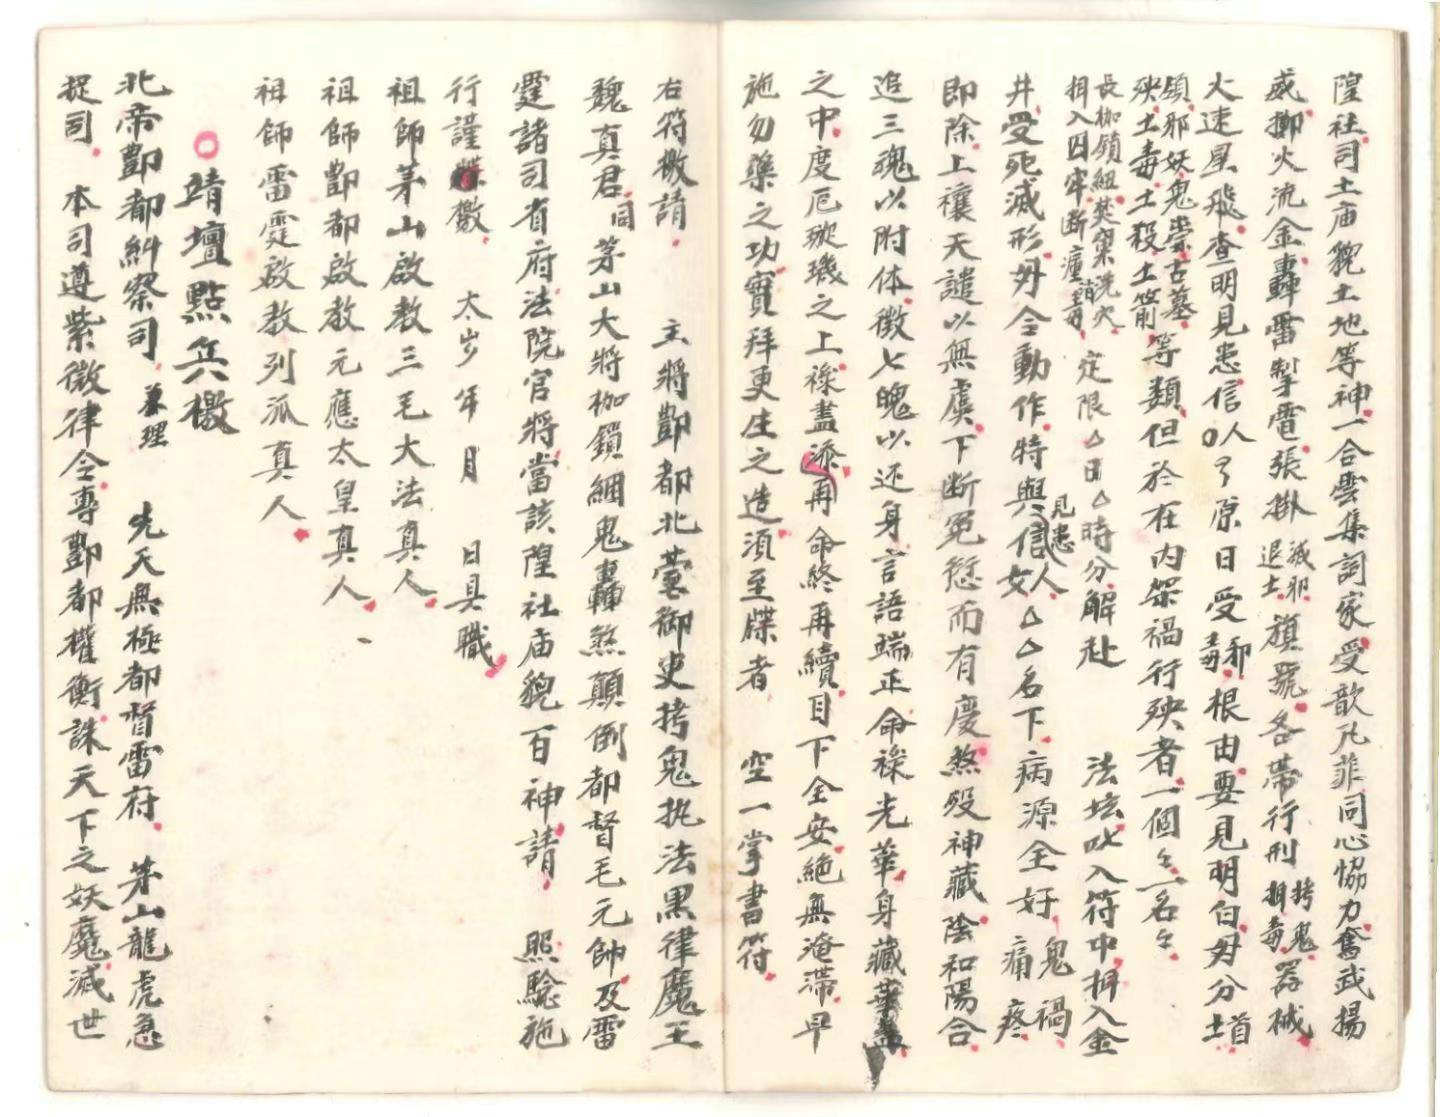 隍社司土庙貌土地等神一合雲集詞家受歆凡菲同心協力奮武揚
威擲火流金轟雷掣電張掛滅邪退土旗號各帶行刑拷鬼押毒器械
火速星飛查明見患信人原日受邪毒根由要見明白毋分土首
頭邪妖鬼祟古墓殃土毒土殺土箭等類但於在内架禍行殃者一個々一名々
長枷鎖紐焚巢洗穴押入囚牢斷瘟消毒定限△日△時分解赴 法坛叱入符中押入金
井受死滅形毋令動作特與見患信人女△△名下病源全好鬼禍痛疼
即除上禳天譴以無虞下断冤愆而有慶煞殁神藏陰和陽合
追三魂以附体徵七魄以还身言語端正命祿光華身藏華蓋
之中度厄璇璣之上祿盡添再命終再續目下全安絶無淹滯早
施勿藥之功實拜更生之造須至牒者 空一掌書符
右符檄請 主將酆都北臺御史拷鬼执法黑律魔王
魏真君同茅山大將枷鎖綑鬼轟煞顛倒都督毛元帥及雷
霆諸司省府法院官將當該隍社庙貌百神請 照驗施
行謹檄 太岁年 月 日具職
祖師茅山啟教三毛大法真人
祖師酆都啟教元應太皇真人
祖師雷霆啟教列派真人
靖壇點兵檄
北帝酆都糾察司兼理 先天無極都督雷府 茅山龍虎急
捉司 本司遵紫微律令專酆都權衡誅天下之妖魔滅世